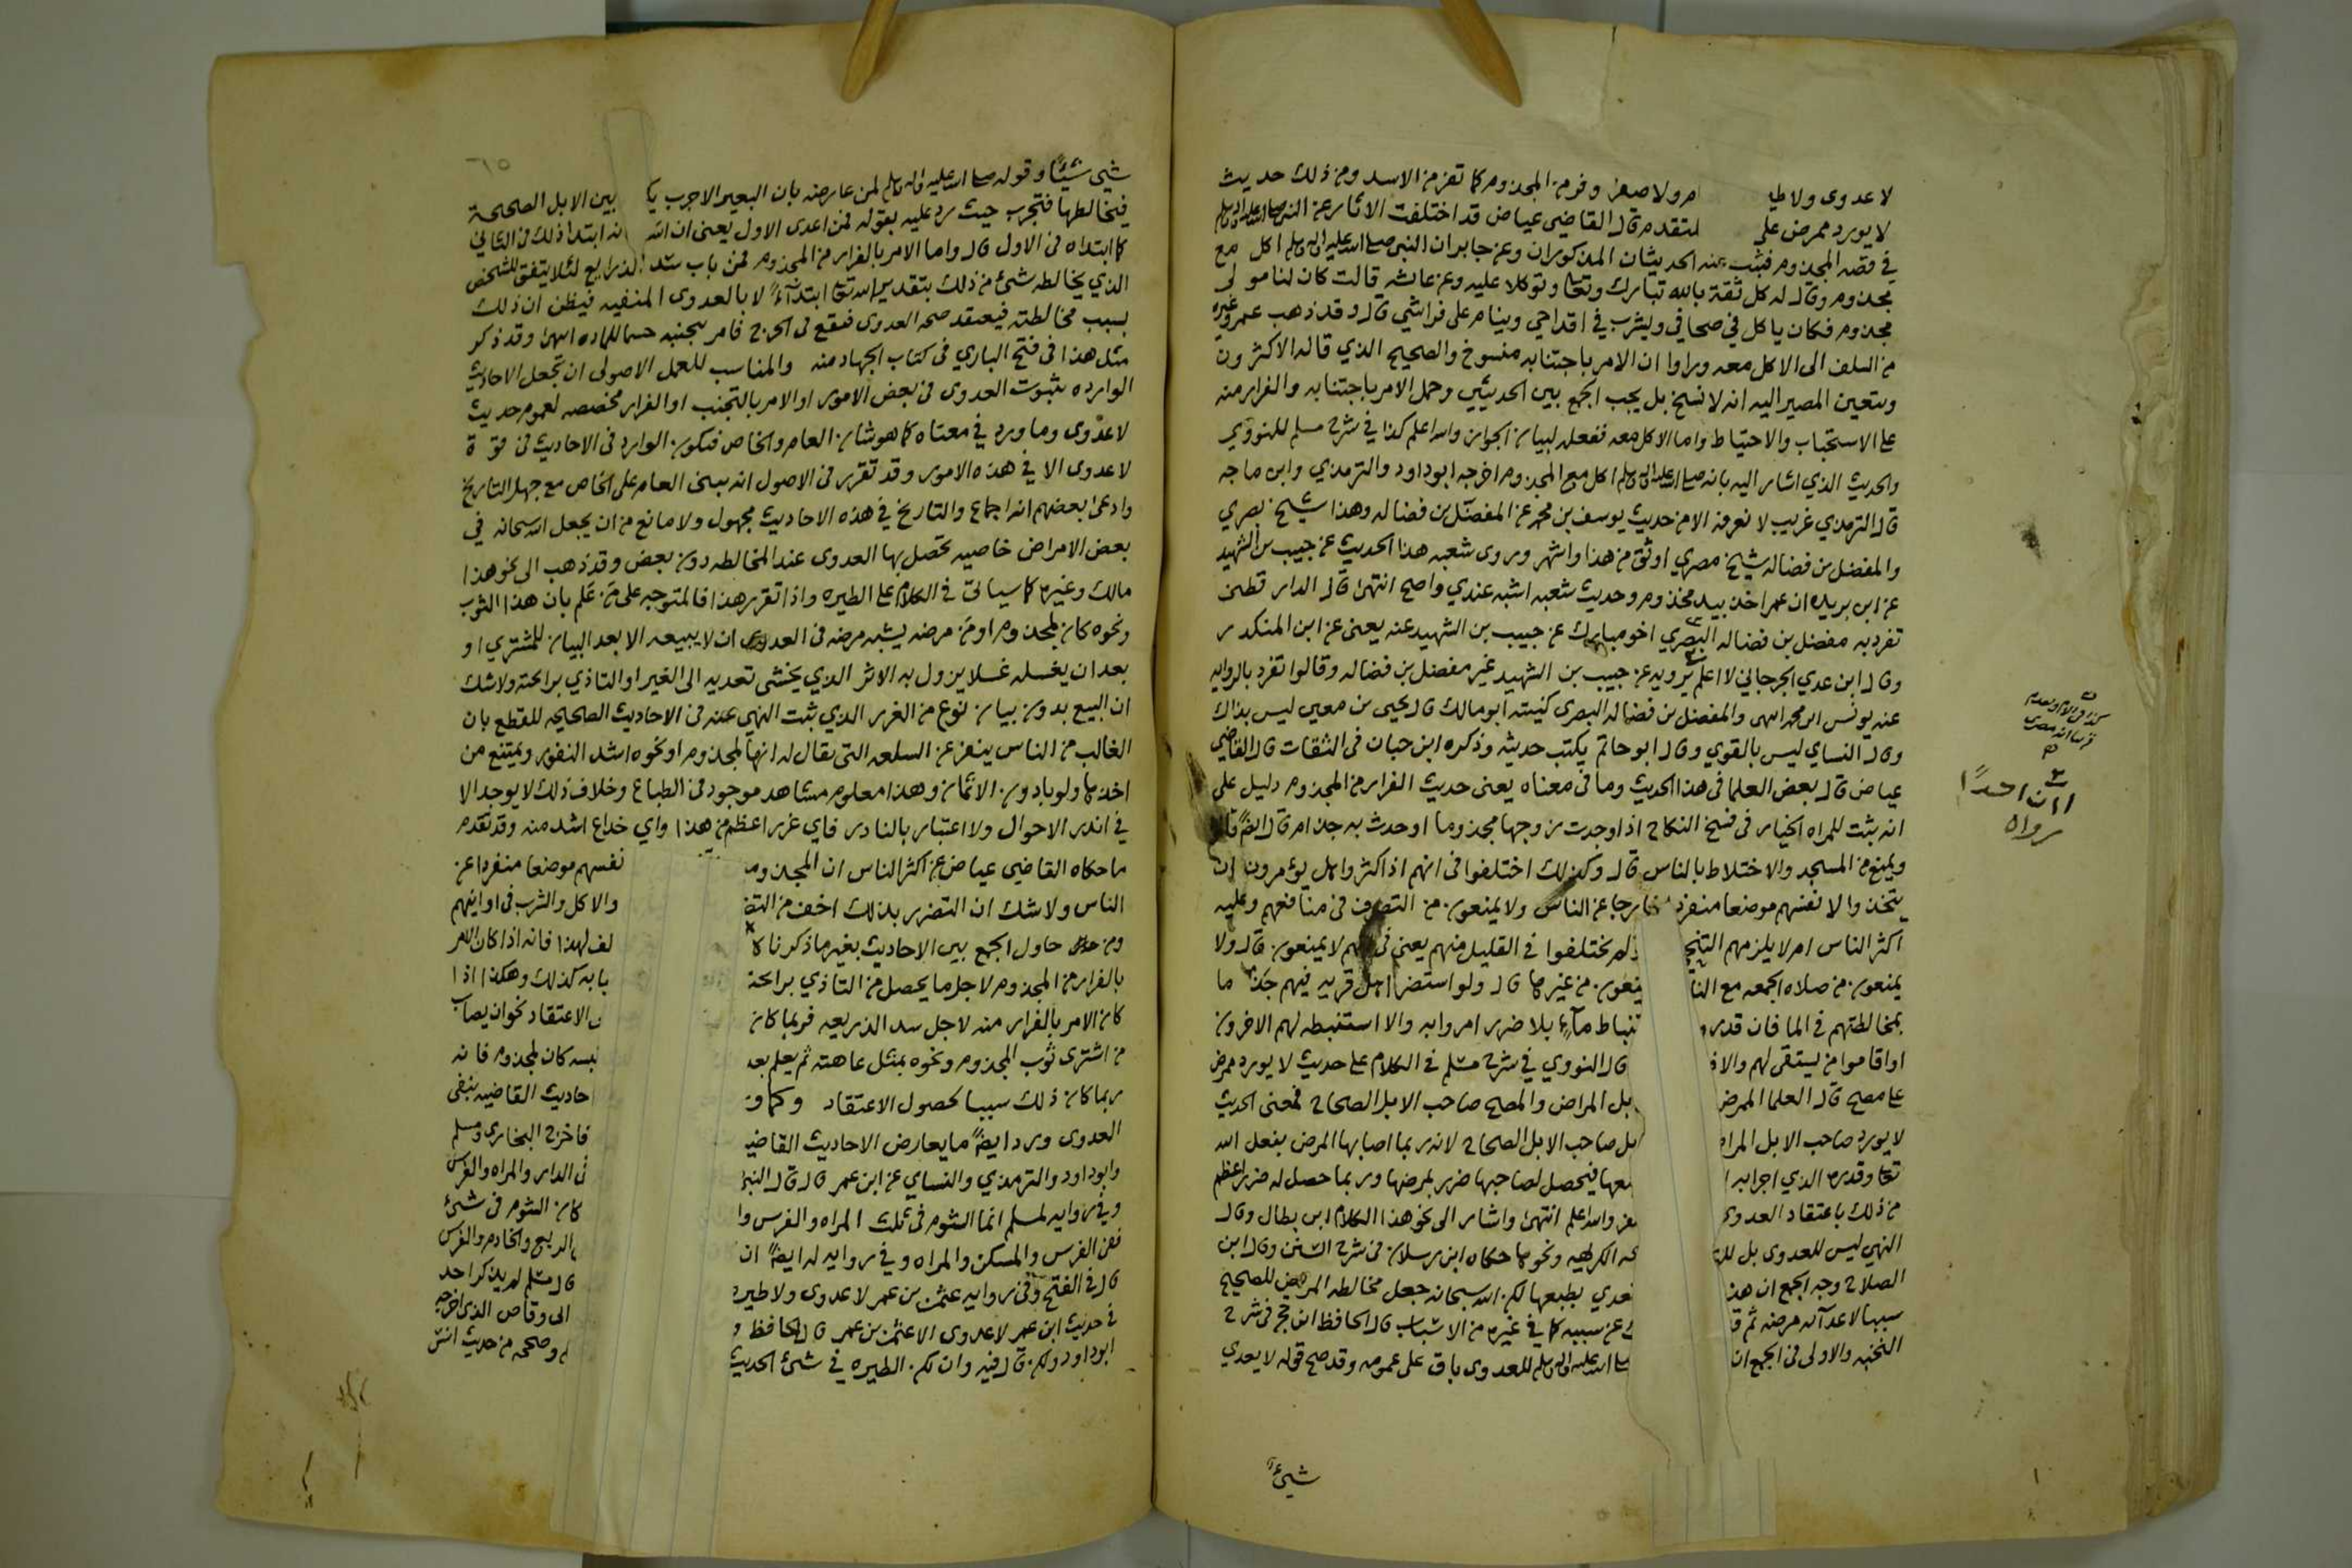 لا عدوى ولا طي امر ولا صفر وفر من المجذوم كما تفر من الاسد ومن ذلك حديث
لا يورد ممرض على المتقدم قال القاضي عياض قد اختلفت الاثار عن النبي صلى الله عليه واله وسلم
في قصه المجذوم فثبت عنه الحديثان المذكوران وعن جابر ان النبي صلى الله عليه واله وسلم اكل مع
مجذوم وقال له كل ثقة بالله تبارك وتعا وتوكلا عليه وعن عائشه قالت كان لنا مولى
مجذوم فكان ياكل في صحافي ويشرب في اقداحي وينام على فراشي قال وقد ذهب عمر وغيره
من السلف الى الاكل معه وراوا ان الامر باجتنابه منسوخ والصحيح الذي قاله الاكثرون
ويتعين المصير اليه انه لا نسخ بل يجب الجمع بين الحديثين وحمل الامر باجتنابه والفرار منه
على الاستحباب والاحتياط واما الاكل معه ففعله لبيان الجواز والله اعلم كذا في شرح مسلم للنووي
والحديث الذي اشار اليه بانه صلى الله عليه واله وسلم اكل مع المجذوم اخرجه ابو داود والترمذي وابن ماجه
قال الترمذي غريب لا نعرفه الا من حديث يوسف بن محمد عن المفضل بن فضاله وهذا شيخ بصري
والمفضل بن فضاله شيخ مصري اوثق من هذا واشهر وروى شعبه هذا الحديث عن حبيب بن الشهيد
عن ابن بريده ان عمر اخذ بيد مجذوم وحديث شعبه اشبه عندي واصح انتهى قال الدار قطني
تفرد به مفضل بن فضاله البصري اخو مبارك عن حبيب بن الشهيد عنه يعني عن ابن المنكدر
وقال ابن عدي الجرجاني لا اعلم يرويه عن حبيب بن الشهيد غير مفضل بن فضاله وقالوا تفرد بالروايه
عنه يونس ابن محمد انتهى والمفضل بن فضاله البصري كنيته ابو مالك قال يحيى بن معين ليس بذاك
وقال النساي ليس بالقوي وقال ابو حاتم يكتب حديثه وذكره ابن حبان في الثقات قال القاضي
عياض قال بعض العلما في هذا الحديث وما في معناه يعني حديث الفرار من المجذوم دليل على
انه يثبت للمراه الخيار في فسخ النكاح اذا وجدت زوجها مجذوما او حدث به جذام قال ايضً قالوا
ويمنع من المسجد والاختلاط بالناس قال وكذلك اختلفوا في انهم اذا كثروا هل يؤمرون ان
يتخذوا لانفسهم موضعا منفرد خارجا عن الناس ولا يمنعون من التصرف في منافعهم وعليه
اكثر الناس ام لا يلزمهم التنح ولم يختلفوا في القليل منهم يعني في انهم لا يمنعون قال ولا
يمنعون من صلاه الجمعه مع النا يمنعون من غيرها قال ولو استضر اهل قريه فيهم جذما
بمخالطتهم في الما فان قدرو تنباط ماء بلا ضرر امروا به والا استنبطه لهم الاخرون
او اقاموا من يستقى لهم والا ف قال النووي في شرح مسلم في الكلام على حديث لا يورد ممرض
على مصح قال العلما الممرض بل المراض والمصح صاحب الابل الصحاح فمعنى الحديث
لا يورد صاحب الابل المرا ابل صاحب الابل الصحاح لانه ربما اصابها المرض بفعل الله
تعا وقدره الذي اجرا به معها فيحصل لصاحبها ضرر بمرضها وربما حصل له ضرر اعظم
من ذلك باعتقاد العدوى والله اعلم انتهى واشار الى نحو هذا الكلام ابن بطال وقال
النهي ليس للعدوى بل لل الكراهيه ونحوها حكاه ابن رسلان في شرح السنن وقال ابن
الصلاح وجه الجمع ان هذ تعدي بطبعها لكن الله سبحانه جعل مخالطه المريض للصحيح
سببا لاعدائه مرضه ثم ق عن سببه كما في غيره من الاسباب قال الحافظ ابن حجر في شرح
النخبه والاولى في الجمع ان صلى الله عليه واله وسلم للعدوى باق على عمومه وقد صح قوله لا يعدي
شيءً
ان احدًا
رواه
شي شيئًا وقوله صلى الله عليه واله وسلم لمن عارضه بان البعير الاجرب يك بين الابل الصحيحة
فيخالطها فتجرب حيث رد عليه بقوله فمن اعدى الاول يعني ان الله انه ابتدا ذلك في الثاني
كما ابتداه في الاول قال واما الامر بالفرار من المجذوم فمن باب سد الذرايع لئلا يتفق للشخص
الذي يخالطه شئ من ذلك بتقدير الله تعا ابتداءً لا بالعدوى المنفيه فيظن ان ذلك
بسبب مخالطته فيعتقد صحه العدوى فيقع في الحرج فامر بتجنبه حسما للماده انتهى وقد ذكر
مثل هذا في فتح الباري في كتاب الجهاد منه والمناسب للعمل الاصولى ان تجعل الاحاديث
الوارده بثبوت العدوى في بعض الامور او الامر بالتجنب او الفرار مخصصه لعموم حديث
لا عدوى وما ورد في معناه كما هو شان العام والخاص فيكون الوارد في الاحاديث في قوة
لا عدوى الا في هذه الامور وقد تقرر في الاصول انه يبنى العام على الخاص مع جهل التاريخ
وادعى بعضهم انه اجماع والتاريخ في هذه الاحاديث مجهول ولا مانع من ان يجعل الله سبحانه في
بعض الامراض خاصيه تحصل بها العدوى عند المخالطه دون بعض وقد ذهب الى نحو هذا
مالك وغيره كما سياتي في الكلام على الطيره واذا تقرر هذا فالمتوجه على من علم بان هذا الثوب
ونحوه كان لمجذوم او من مرضه يشبه مرضه في العدوى ان لا يبيعه الا بعد البيان للمشتري او
بعد ان يغسله غسلا يزول به الاثر الذي يخشى تعديه الى الغير او التاذي براحته ولا شك
ان البيع بدون بيان نوع من الغرر الذي ثبت النهي عنه في الاحاديث الصحيحه للقطع بان
الغالب من الناس ينفر عن السلعه التي يقال له انها لمجذوم او نحوه اشد النفور ويمتنع من
اخذها ولو بادون الاثمان وهذا معلوم مشاهد موجود في الطباع وخلاف ذلك لا يوجد الا
في اندر الاحوال ولا اعتبار بالنادر فاي غرر اعظم من هذا واي خداع اشد منه وقد تقدم
ما حكاه القاضي عياض عن اكثر الناس ان المجذوم نفسهم موضعا منفردا عن
الناس ولا شك ان التضرر بذلك اخف من التض والاكل والشرب في اوانيهم
ومن حاول الجمع بين الاحاديث بغير ما ذكرنا ك لف لهذا فانه اذا كان الامر
بالفرار من المجذوم لاجل ما يحصل من التاذي براحته بابه كذلك وهكذا اذا
كان الامر بالفرار منه لاجل سد الذريعه فربما كان الاعتقاد نحو ان يصاب
من اشترى ثوب المجذوم ونحوه بمثل عاهته ثم يعلم بعد لبسه كان لمجذوم فانه
ربما كان ذلك سببا لحصول الاعتقاد وكما و احاديث القاضيه بنفي
العدوى ورد ايضً ما يعارض الاحاديث القاضي فاخرج البخاري ومسلم
وابو داود والترمذي والنساي عن ابن عمر قال قال النبي في الدار والمراه والفرس
وفي روايه لمسلم انما الشوم في ثلث المراه والفرس وا كان الشوم في شئ
ففي الفرس والمسكن والمراه وفي روايه له ايضً ان الربع والخادم والفرس
قال في الفتح وفي روايه عثمن بن عمر لا عدوى ولا طيره قال مسلم لم يذكر احد
في حديث ابن عمر لا عدوى الا عثمن بن عمر قال الحافظ و ابى وقاص الذي اخرجه
ابو داود ولكن قال فيه وان تكن الطيره في شئ الحديث وصححه من حديث انس